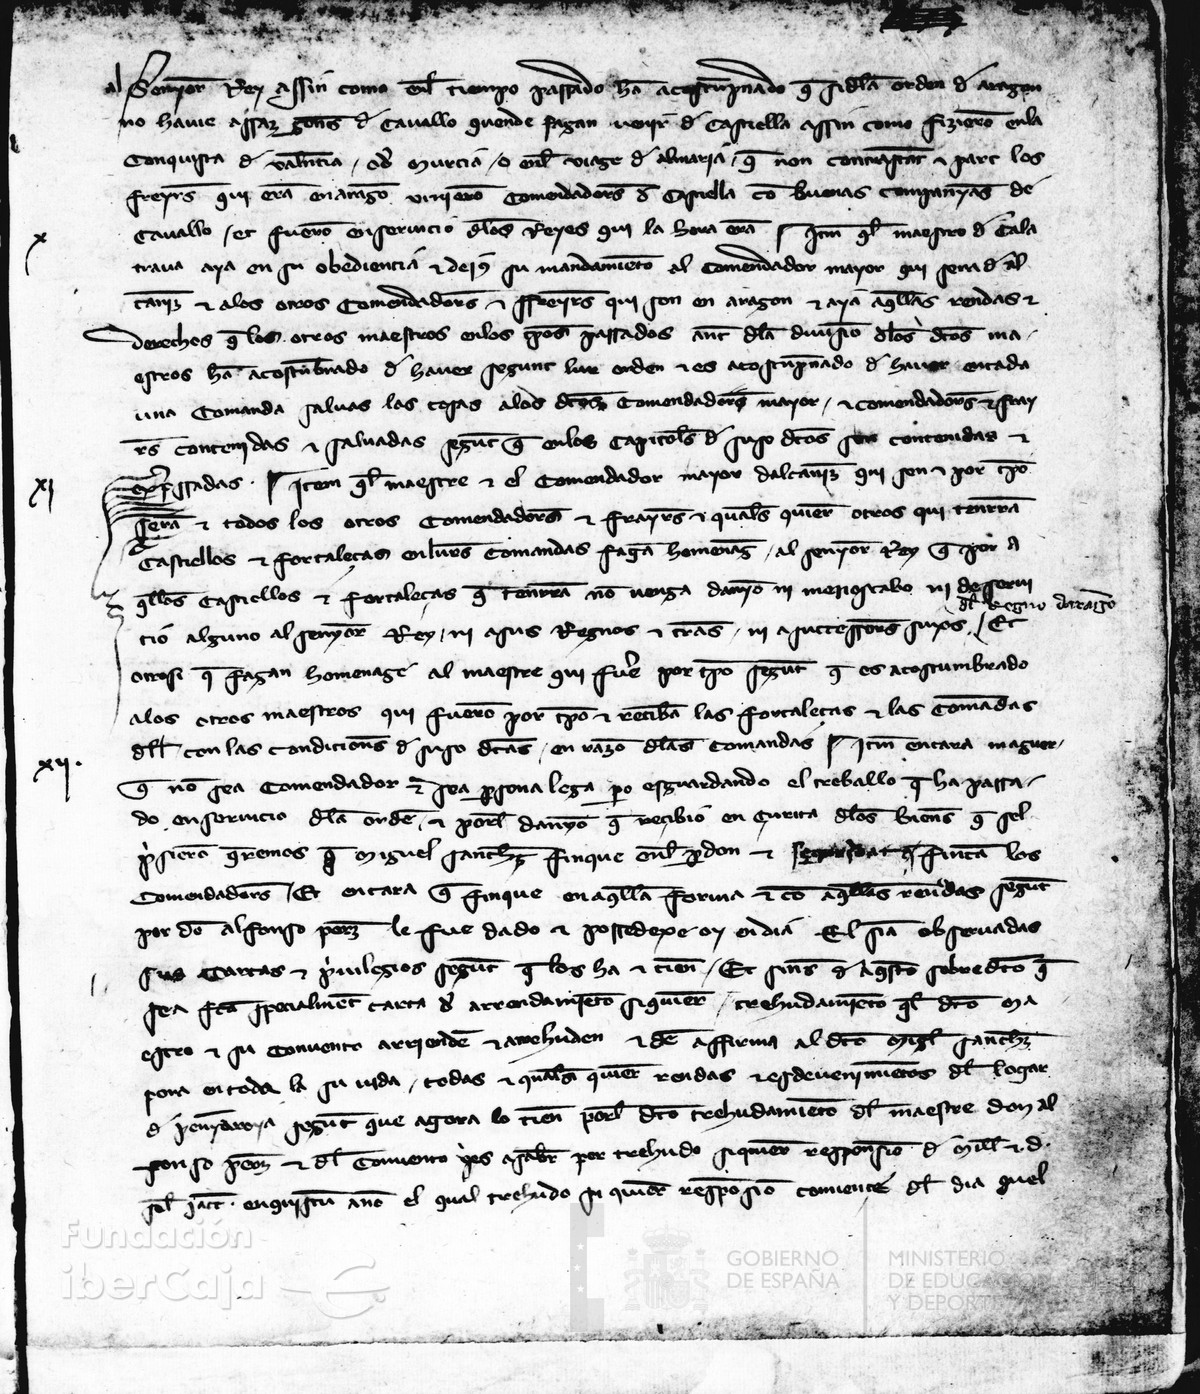 al Senyor Rey assin como enl tiempo passado ha acostupnado q si dla orden d aragon
no havie assaz gons d Cavallo quende fagan venir d Castiella assin como fizieron enla
Conquista d valentia, o d Murcia, o enl viage d almaria, q non contrastat τ part los
freyrs qui eran en arago vinieron Comendadors d Castiella co buenas companyas de
Cavallo, et fueron enservicio dlos Reyes qui la hora eran Itm ql maestro d Cala
x
trava aya en su obediencia τ dejus su mandamieto al Comendador mayor qui sera d al
caniz τ alos otros Comendadors τ ffreyrs qui son en aragon τ aya aqllas rendas τ
derechos q los otros maestros enlos tpos passados ant dla divisio dlos dtos ma
estros ha acostubnado d haver segunt lur orden τ es acostupnado d haver en cada
una Comanda salvas las cosas alos dtos Comendador mayor, τ comendadors τ fray
rs contenidas τ salvadas segut q enlos Capitols d suso dtos son contenidas τ
xi
expssadas. Item ql maestre τ el Comendador mayor dalcaniz qui son τ por tpo
seran τ todos los otros Comendadors τ frayrs τ quals quier otros qui tenrran
Castiellos τ fortaleças enlurs Comandas fagan homenag, al senyor Rey q por a
qllos Castiellos τ fortaleças q tenrran no venga danyo ni menoscabo ni desservi
dl Regno darago
cio alguno al senyor Rey, ni asus Regnos τ trras, ni asuccessors suyos, Et
otrosi q fagan homenage al maestre qui fuer por tpo segut q es acostumbrado
alos otros maestros qui fuero por tpo τ reciban las fortaleças τ las Comadas
dll con las condicions d suso dtas, en razo dlas Comandas Itm encara maguer
xii.
q no sea Comendador τ sea psona lega po esguardando el treballo q ha passa
do enservicio dla orde, τ porl danyo q recibio en Çurita dlos biens q sel
psiero qremos q Miguel sanchz finque enl pdon τ finca los
Comendadors, Et encara q finque en aqlla forma τ co aqllas rendas segut
por do Alfonso perz le fue dado τ possedexe oy en dia El sia observadas
sus Cartas τ privilegios segut q los ha τ tien, Et sins d aqsto sobredto q
sea fta specialmet carta d arrendamieto siquier, trehudamieto ql dto Ma
estro τ su Convento arrienden τ atrehuden τ de affirma al dto Migl sanchz
pora en toda la su vida, todas τ quals quier rendas τ esdevenimietos dl logar
d penyarroya segut que agora lo tien porl dto trehudamieto dl maestre don al
fonso perz τ dl Convento yes assabr por trehudo siquier responsio d Mill τ d.
sol jacc. en quiscun anno el qual trehudo si quier resposio comiençe dl dia quel
Fundación
iberCaja
GOBIERNO
DE ESPAÑA
MINISTERIO
DE EDUCACIÓN
Y DEPORTE